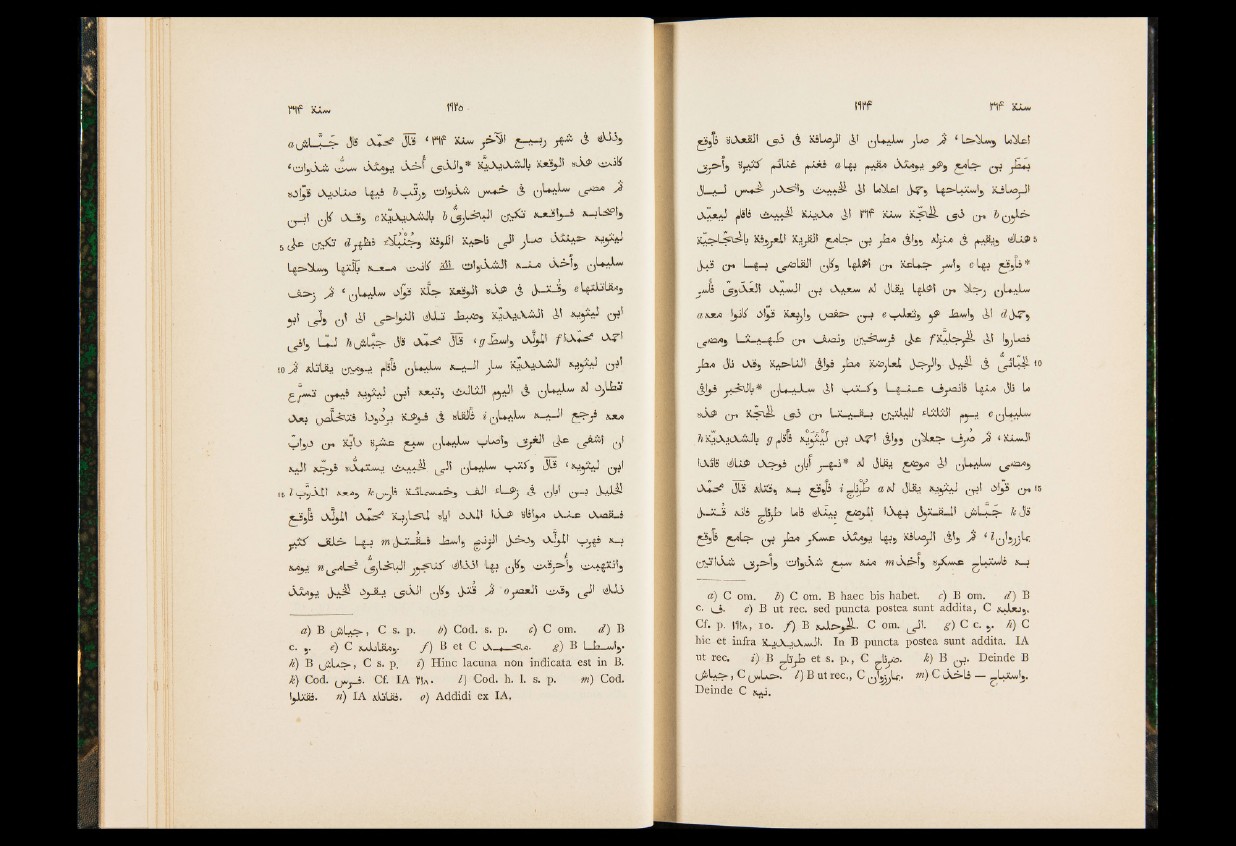 سنة ٢٦٤
١٩٢٤
اعلاما وسلاحا، ثم صار سليمان الى الرصافة فى ذى القعدة فأوقع
بمَطَر بن جامع وهو يومئذ مقيم بها a فغنم غنائم كثيرة وأحرق
الرصافة واستباحها وحمل اعلاما الى الخبيث وانحدر لخمس ليال
خلون b من ذى الحجّة سنة ٢٦٤ الى مدينة الخبيث فاقام ليعيّد
5 هناك ويقيم فى منزله ووافى مطر بن جامع القرية المعروفة بالحجّاجيّة
*فأوقع بها c واسر جماعة من اهلها وكان القاضى بها من قبل
سليمان رجلا من اهلها يقال له سعيد بن السيّد العَدَوىّ فأُسر
وحمل d الى واسط هو وثعلب e بن حفص واربعة قوّاد كانوا معه a
فصاروا الى الحرجليّة f على فرسخين ونصف من طهيثا ومضى
10 الجُبّائىّ فى الخيل والرجل لمعارضة مطر فوافى الناحية وقد نال مطر
ما نال منها فانصرف عنها وكتب الى سليمان *بالخبر فوافى
سليمان e يوم الثلثاء لليلتين بقيتا من ذى الحجّة من هذه
السنة، ثم صُرف جعلان ووافى احمد بن لَيْثَوَيْه فأقام g بالشديديّة h
ومضى سليمان الى موضع يقال له *نهر أبان فوجد هناك قائدا
15 من قوّاد ابن ليثويه يقال له a طُرْناج i فأوقع به وقتله قال محمّد
قال k جَبّاش المقتول بهذا الموضع بينك فاما طرناج فانه قُتل
بمازروان l، ثم وافى الرصافة وبها يومئذ عسكر مطر بن جامع فأوقع
به فاستباح عسكره وأخذ m منه سبع شذوات وأحرق شذاتين
a) C om. b) C om. B haec bis habet. c) B om. d) B
c. ف. e) B ut rec. sed puncta postea sunt addita, C وتعلبه.
Cf. p. ١٩١٨, 10. f) B الحوحلية. C om. الى. g) C c. و. h) C
hic et infra الشديدية. In B puncta postea sunt addita. IA
ut rec. i) B طرناج et s. p., C k) B بن. Deinde B
جباش, C حماس. l) B ut rec., C بمازروان. m) C واستباح — فاخذ.
Deinde C
١٩٢٥
سنة ٢٦٤
وذلك فى شهر ربيع الآخر سنة ٢٦٤، قال محمّد قال جَبّاش a
كانت هذه الوقعة بالشديديّة *والذى أُخذ يومئذ ستّ شذوات،
ثم مضى سليمان فى خمس شذوات ورتّب b فيها صناديد قوّاده
واصحابه فواقعه تكين البخارىّ b بالشديديّة c وقد كان ابن
5 ليثويه حينئذ صار الى ناحية الكوفة وجُنْبُلاء فظهر d تكين على
سليمان وأخذ منه الشذوات التى كانت معه بآلتها وسلاحها
ومقاتلتها e وقُتل فى هذه الوقعة جلّة قوّاد سليمان، ثم زحف
ابن ليثويه الى الشديديّة وضبط تلك النواحى الى ان ولّى ابو
احمد محمّدا f المولّد واسط g، قال محمد قال جبّاش h لمّا وافى
10 ابن ليثويه الشديديّة سار اليه سليمان فأقام يومين يقاتله ثم
تطارد له سليمان فى اليوم الثالث وتبعه ابن ليثويه فيمن تسرّع
معه فرجع اليه سليمان i فألقاه فى فوهة بردودا فتخلّص بعد
ان اشفى على الغرق واصاب سليمان سبع عشرة دابّة من دوابّ
ابن ليثويه، قال وكتب سليمان الى الخبيث يستمدّه فوجّه اليه
15 الخليل بن ابان فى زهاء الف وخمسمائة فارس k ومعه المذوّب l
فقصد عند موافاة هذا المدد اياه لمحاربة محمّد المولّد فأوقع
به فهرب المولّد ودخل الزنج واسط فقُتل m بها خلق كثير
وانتهبت وأحرقت وكان بها اذذاك كنجور البخارىّ فحامى n يومه
ذلك الى وقت العصر o ثم قُتل وكان الذى يقود الخيل يومئذ
a) B جباش, C s. p. b) Cod. s. p. c) C om. d) B
c. و. e) C ومقابلته. f) B et C محمد. g) B واسطا.
h) B جباش, C s. p. i) Hinc lacuna non indicata est in B.
k) Cod. فرس. Cf. IA ٢١٨. l) Cod. h. l. s. p. m) Cod.
فقتلوا. n) IA فقاتله. o) Addidi ex IA.